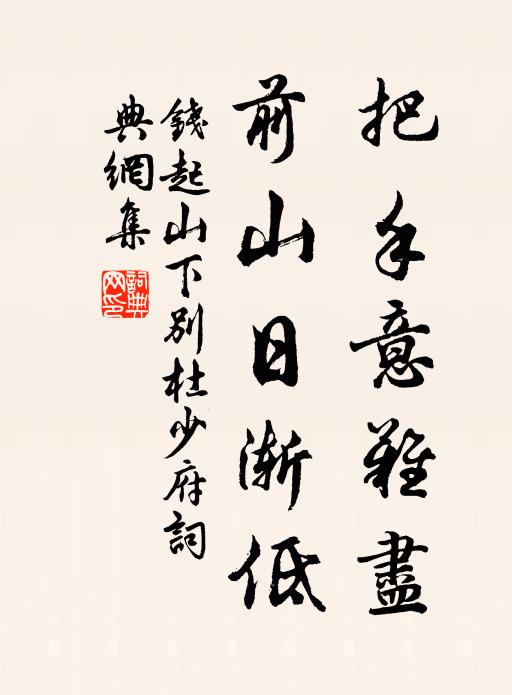 把手意難盡
前山日漸低
錢起山下別杜少府詞
典網集
詞典網印